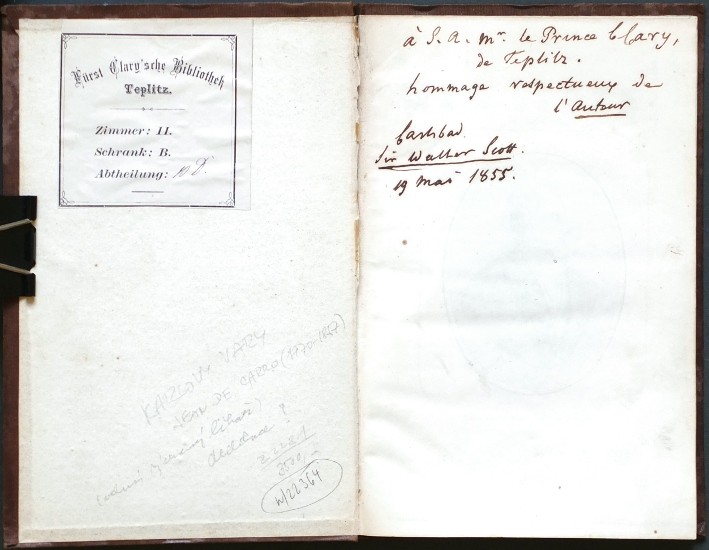 Fürst Clary'sche Bibliothek
Teplitz.
Zimmer: II.
Schrank: B.
Abtheilung:
KARLOVY VARY
JEAN DE CARRO (1770-1857)
W/22364
à S. A. Mr. le Prince Clary,
de Teplitz.
hommage respectueux de
l'Auteur
Carlsbad.
Sir Walter Scott.
19 Mai 1855.